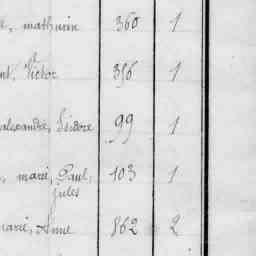 , mathurin 360 1
nt, Victor 356 1
alexandre, Isidore 99 1
, marie, Paul, 103 1
jules
marie, Aimé 862 2